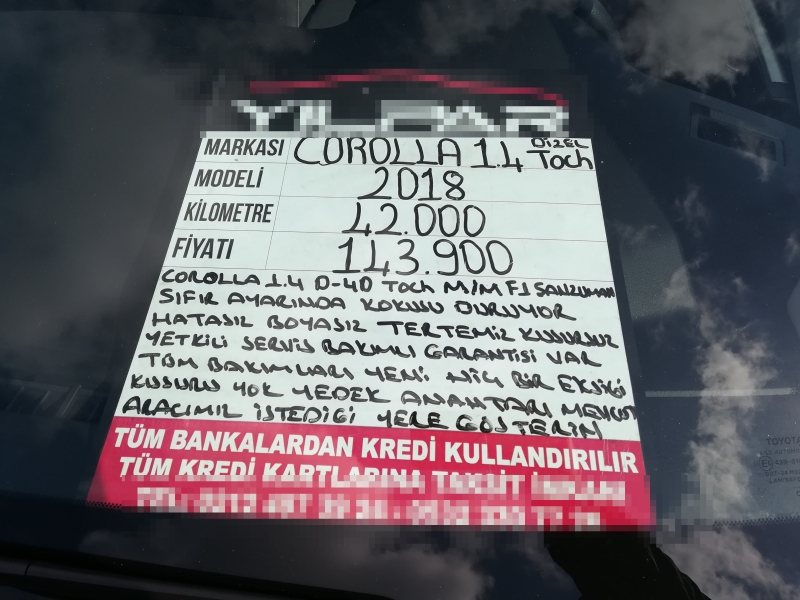 MARKASI COROLLA 1.4 DİZEL Toch
MODELİ 2018
KİLOMETRE 42.000
FİYATI 143.900
COROLLA 1.4 D-4D Toch M/M F1 SANZUMAN
SIFIR AYARINDA KOKUSU DURUYOR
HATASIZ BOYASIZ TERTEMİZ KUSURSUZ
YETKİLİ SERVİS BAKIMLI GARANTİSİ VAR
TÜM BAKIMLARI YENİ HİÇ BİR EKSİĞİ
KUSURU YOK YEDEK ANAHTARI MEVCUT
ARACIMIZ İSTEDİĞİ YERE GÖSTERİN
TÜM BANKALARDAN KREDİ KULLANDIRILIR
TÜM KREDİ KARTLARINA TAKSİT İMKANI
TOYOTA